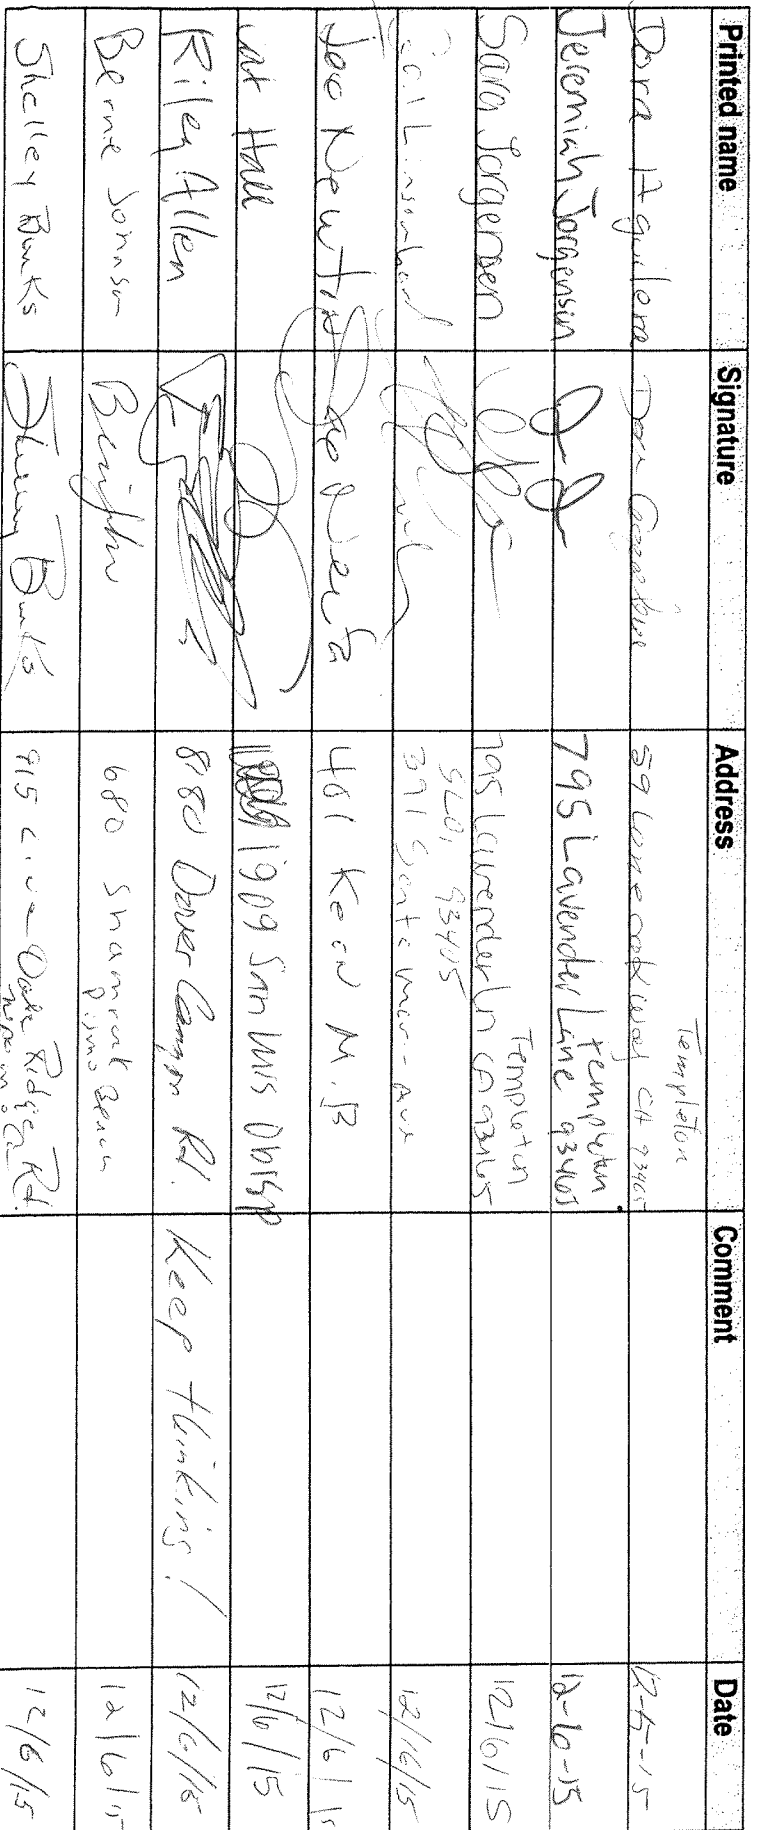 Printed name Signature Address Comment Date
Dora Aguilera Templeton CA 93465 12-5-15
Jeremiah Jorgensen 795 Lavender Lane templeton 93465 12-6-15
Sara Jorgensen 795 Lavender Ln Templeton CA 93465 12/6/15
SLO, 93405
391 Santa 12/6/15
Joo Newton 461 Kern M.B 12/6/15
Hall 1909 San Luis Obispo 12/6/15
Riley Allen 8180 Dover Canyon Rd. Keep thinking! 12/6/15
Bernie Johnson 680 Shamrock 12/6/15
Pismo Beach
Shelley Bunks Shelley Bunks 915 Live Oak Ridge Rd. 12/6/15
Nipomo, Ca